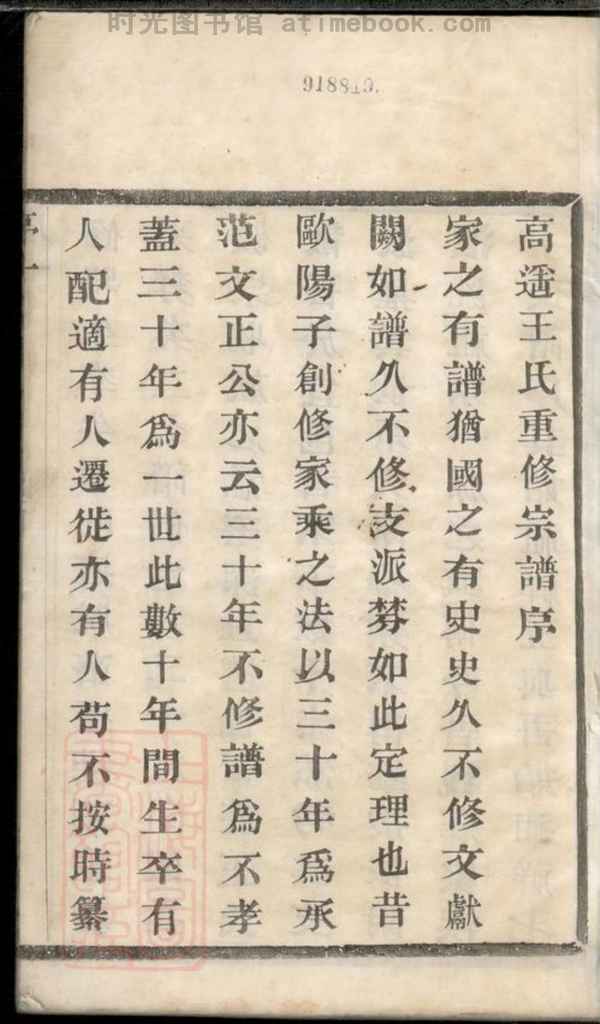 时光图书馆 - atimebook.com
918849.
高遥王氏重修宗譜序
家之有譜猶國之有史史久不修文獻
闕如譜久不修支派棼如此定理也昔
歐陽子創修家乘之法以三十年爲承
范文正公亦云三十年不修譜爲不孝
蓋三十年爲一世此數十年間生卒有
人配適有人遷徙亦有人苟不按時纂